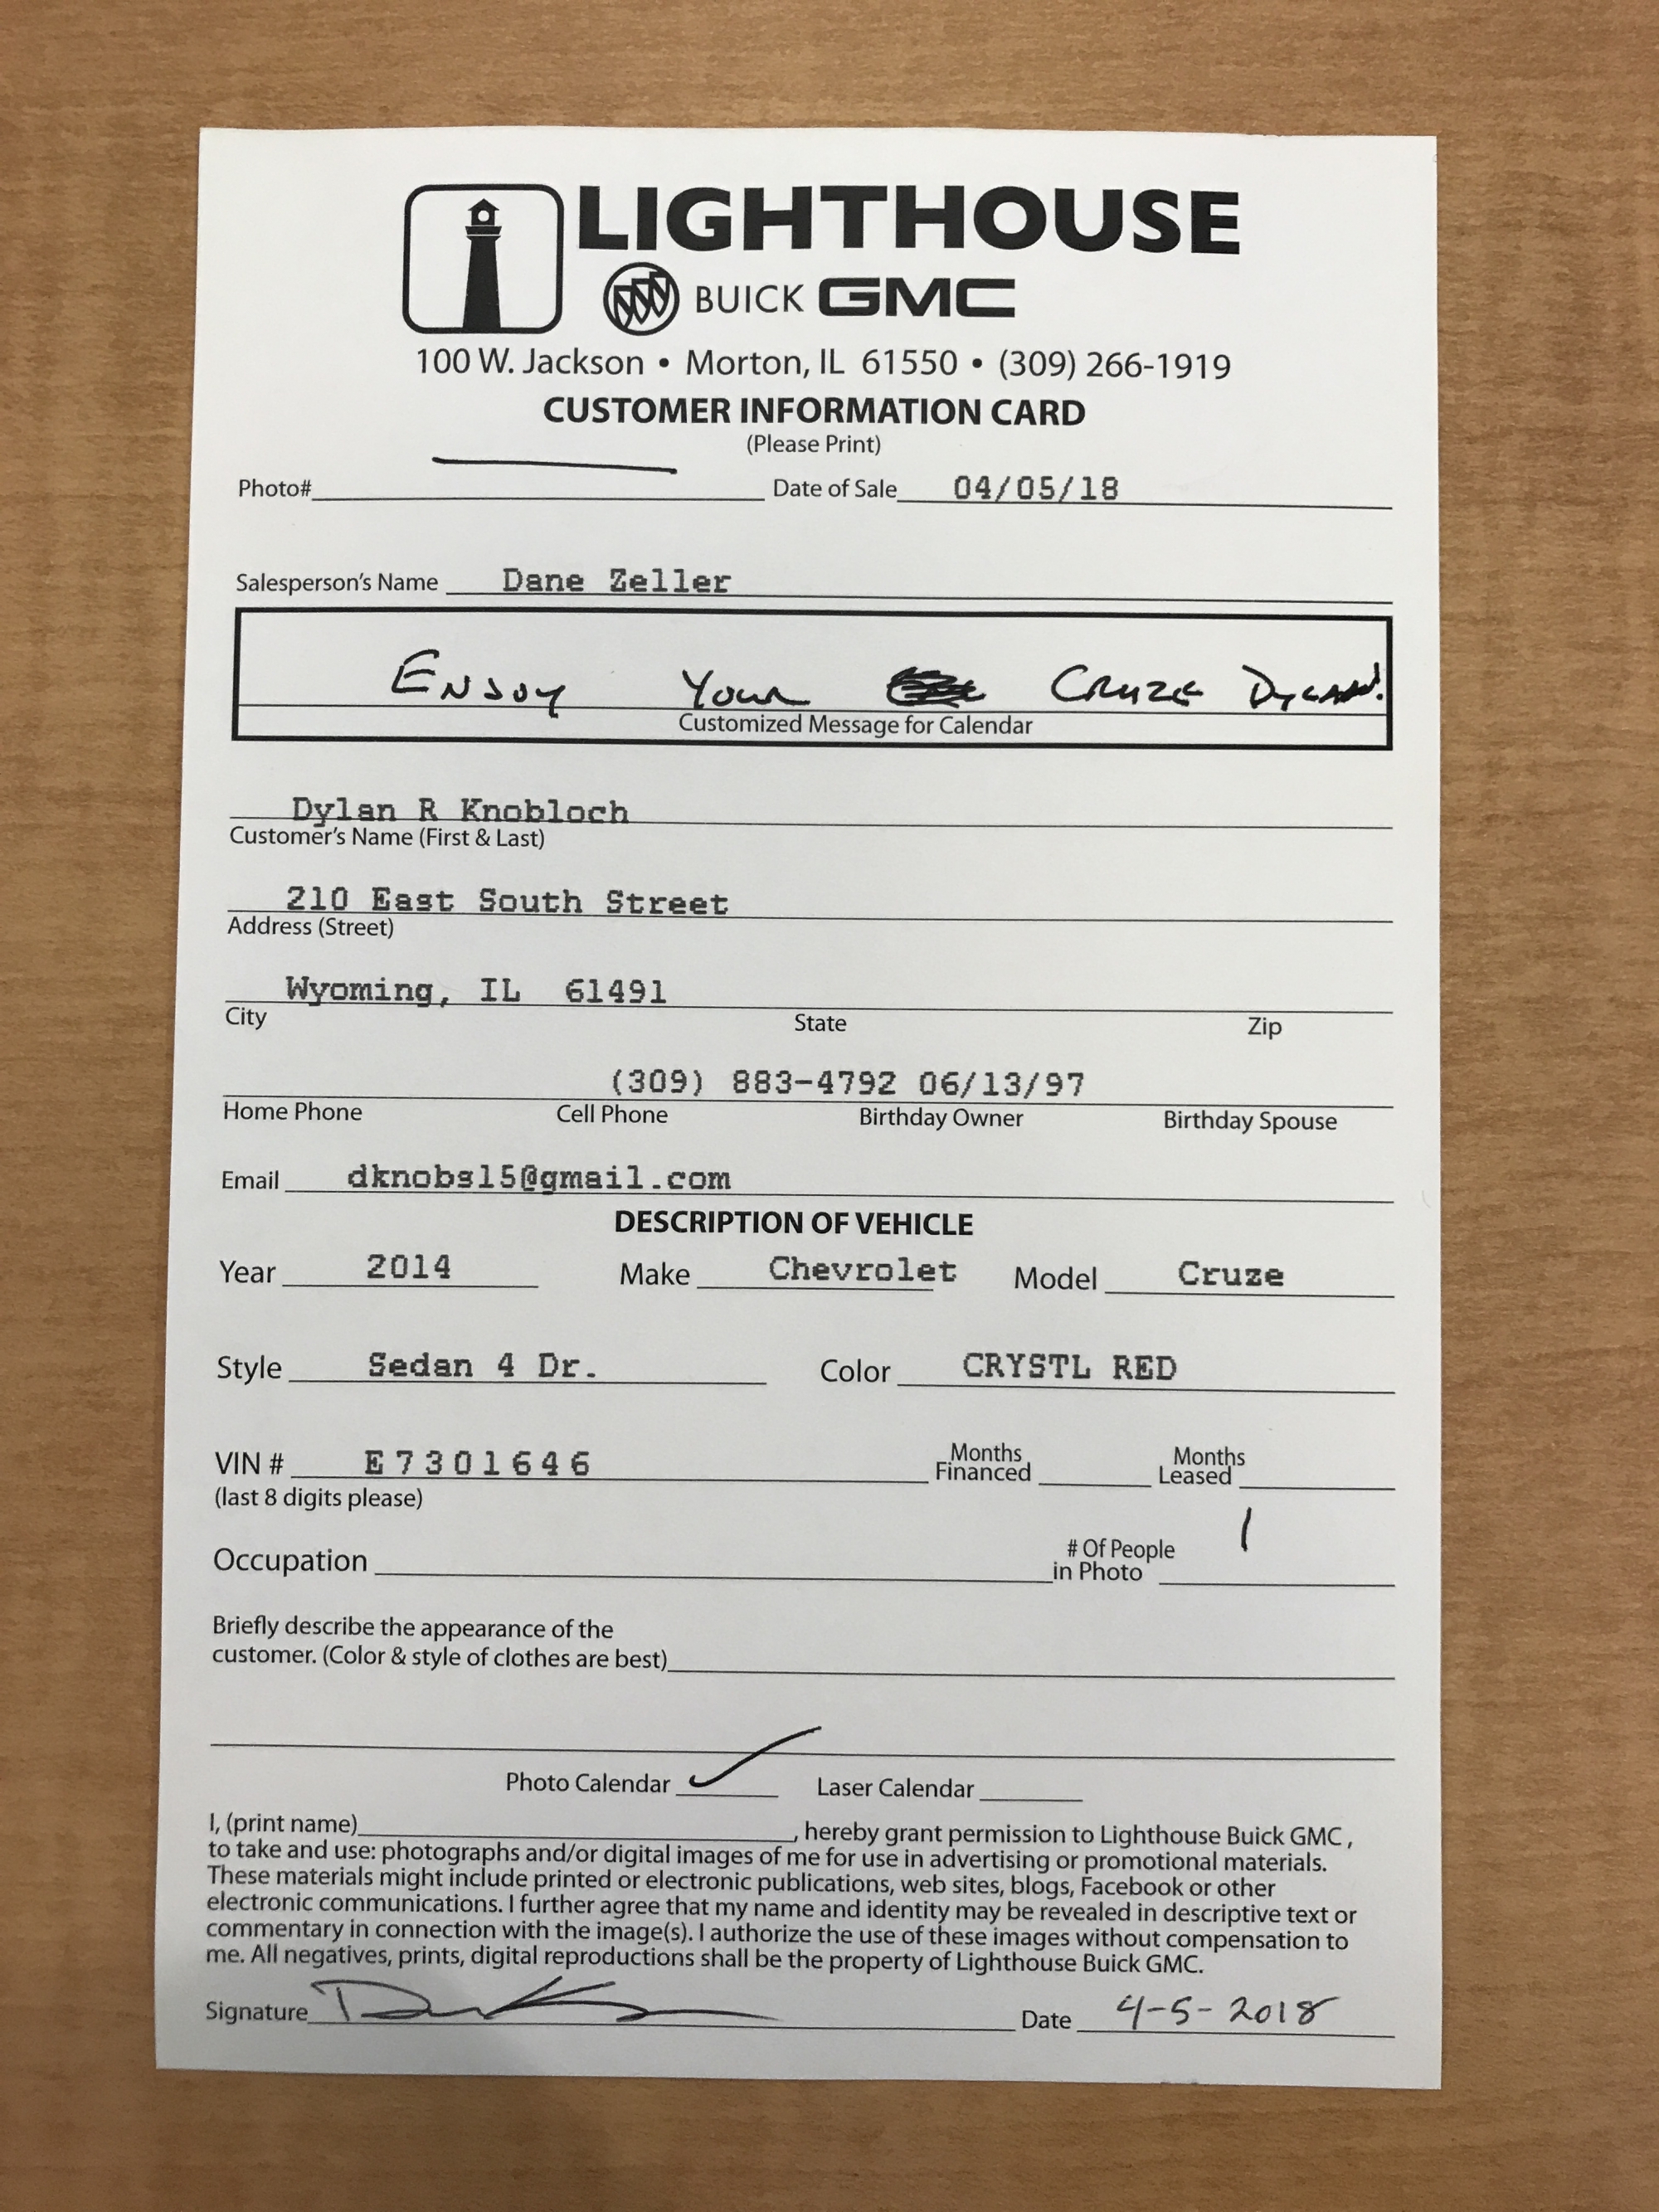 LIGHTHOUSE
BUICK GMC
100 W. Jackson • Morton, IL 61550 • (309) 266-1919
CUSTOMER INFORMATION CARD
(Please Print)
Photo# Date of Sale 04/05/18
Salesperson's Name Dane Zeller
Enjoy Your Cruze Dylan!
Customized Message for Calendar
Dylan R Knobloch
Customer's Name (First & Last)
210 East South Street
Address (Street)
Wyoming, IL 61491
City State Zip
(309) 883-4792 06/13/97
Home Phone Cell Phone Birthday Owner Birthday Spouse
Email dknobs15@gmail.com
DESCRIPTION OF VEHICLE
Year 2014 Make Chevrolet Model Cruze
Style Sedan 4 Dr. Color CRYSTL RED
VIN # E7301646 Months Financed Months Leased
(last 8 digits please)
Occupation # Of People in Photo 1
Briefly describe the appearance of the
customer. (Color & style of clothes are best)
Photo Calendar ✓ Laser Calendar
I, (print name), hereby grant permission to Lighthouse Buick GMC,
to take and use: photographs and/or digital images of me for use in advertising or promotional materials.
These materials might include printed or electronic publications, web sites, blogs, Facebook or other
electronic communications. I further agree that my name and identity may be revealed in descriptive text or
commentary in connection with the image(s). I authorize the use of these images without compensation to
me. All negatives, prints, digital reproductions shall be the property of Lighthouse Buick GMC.
Signature Date 4-5-2018